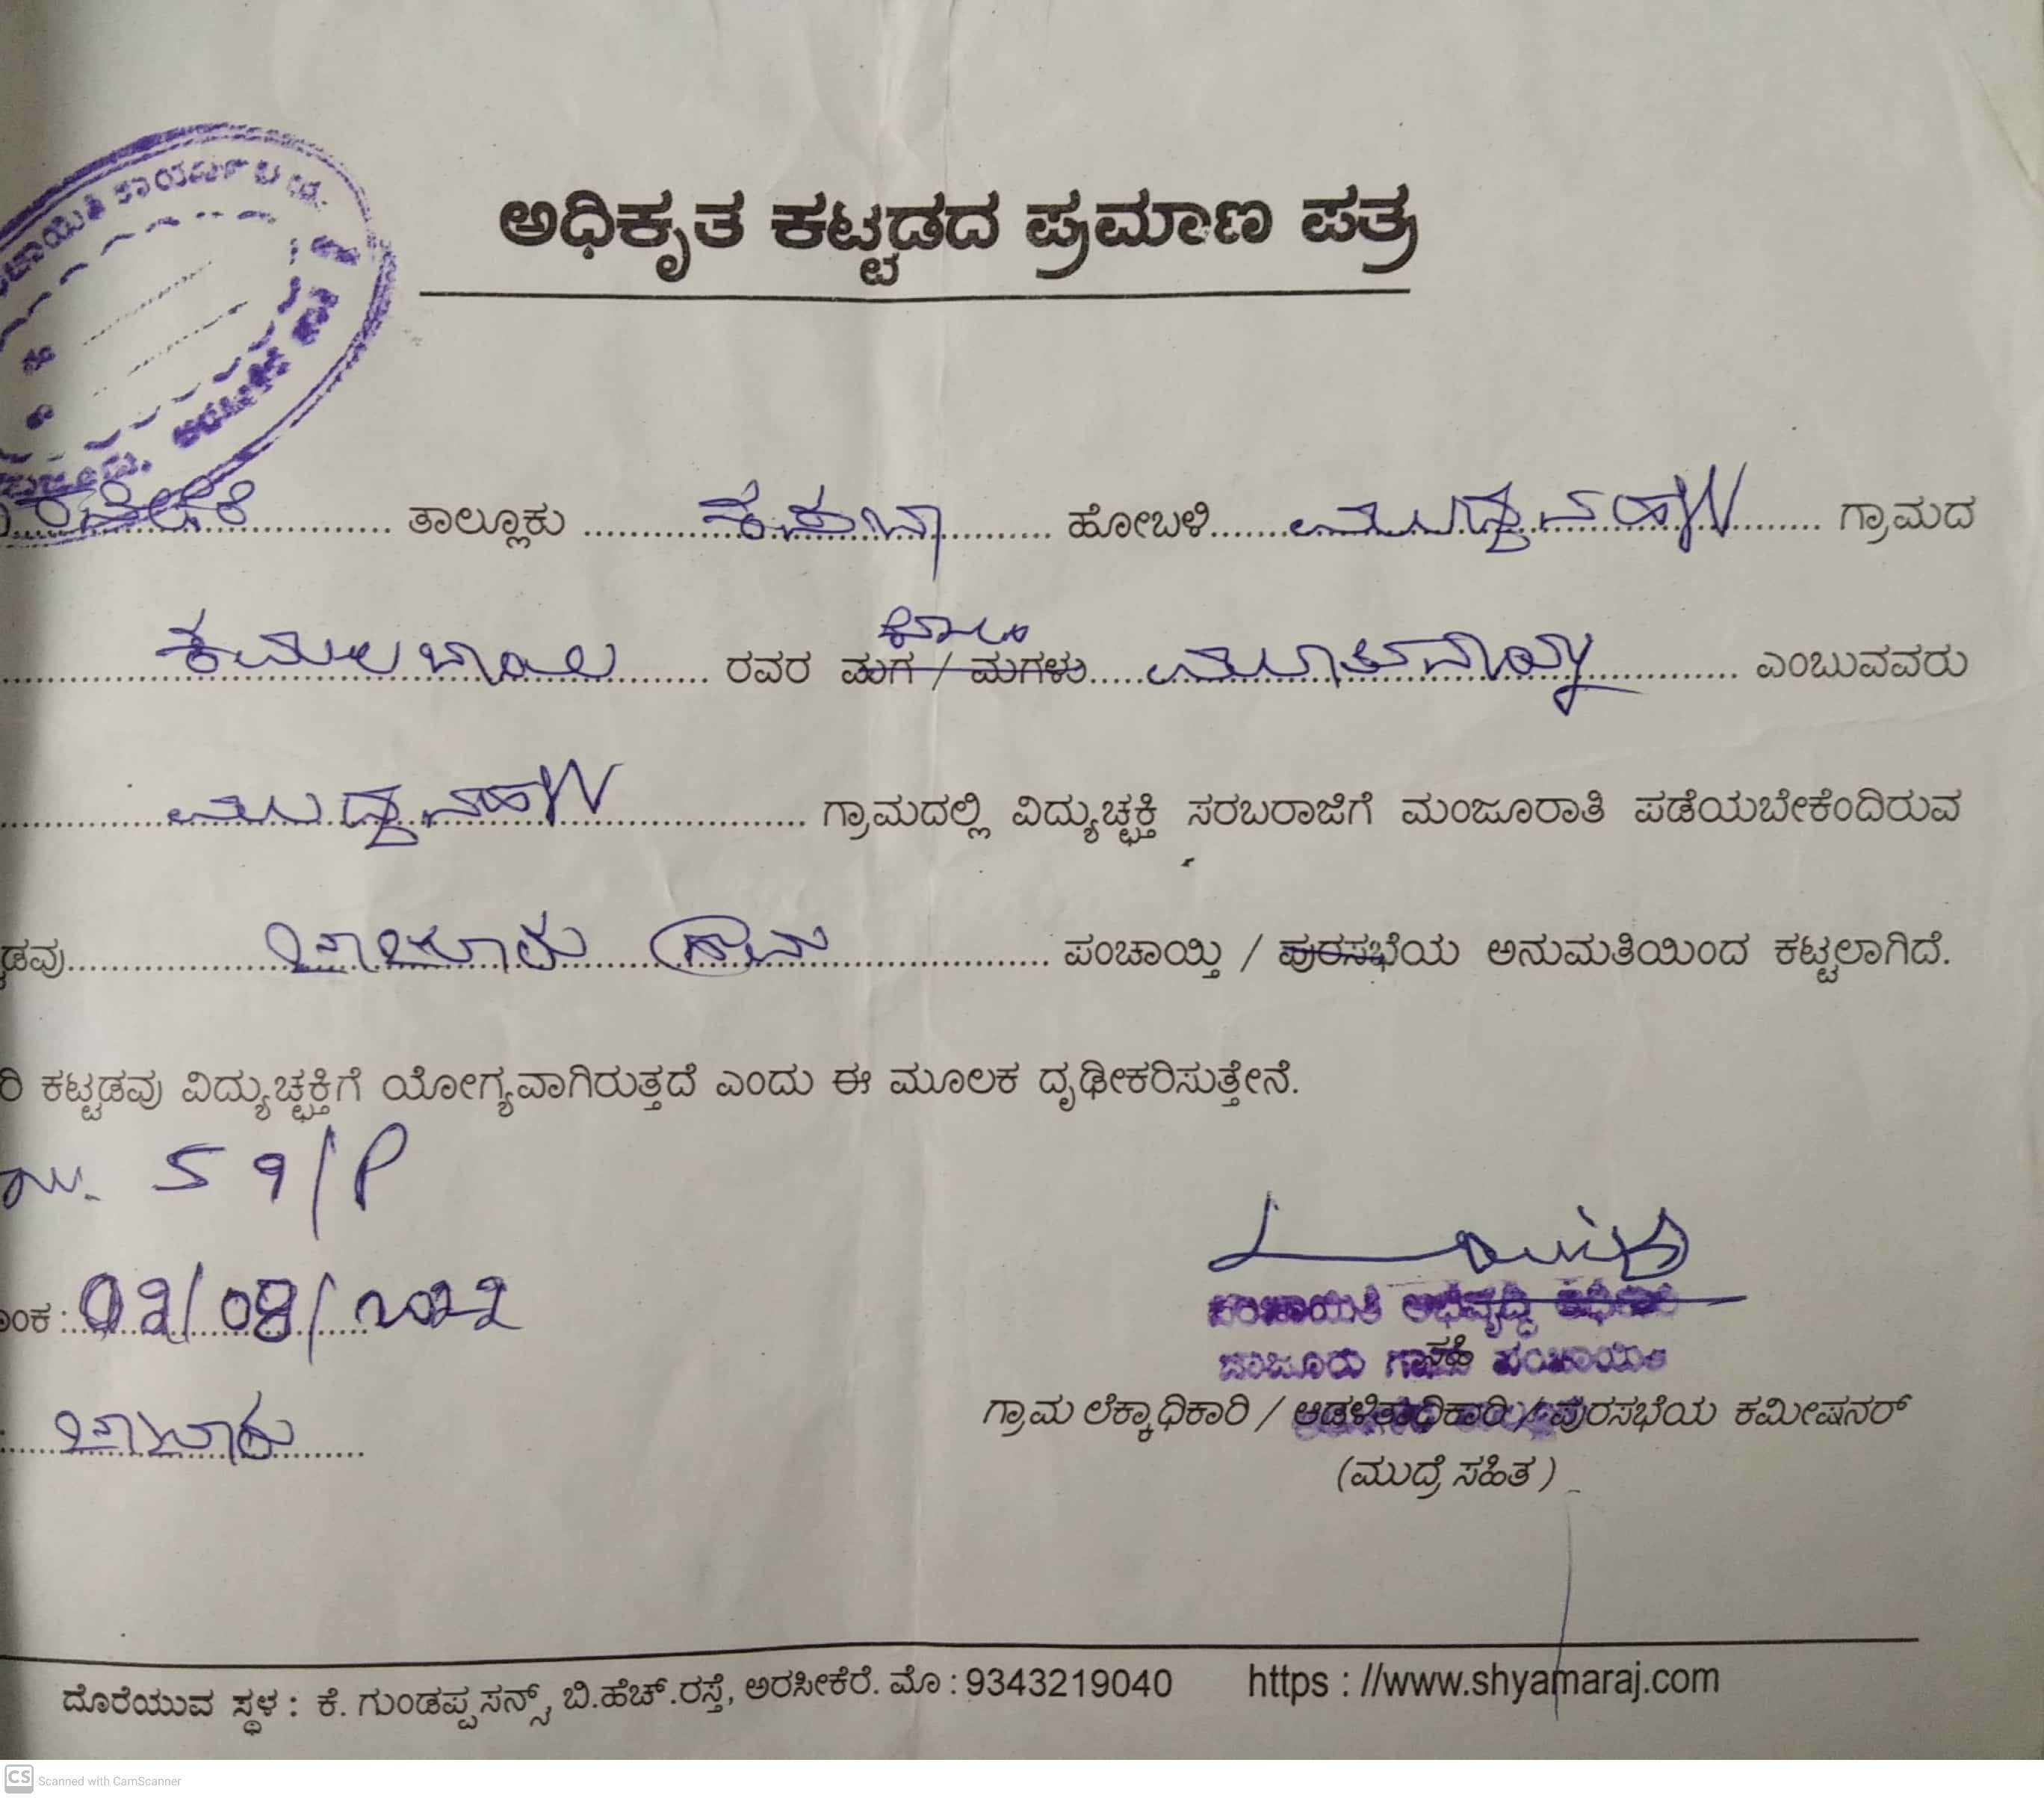 ಅಧಿಕೃತ ಕಟ್ಟಡದ ಪ್ರಮಾಣ ಪತ್ರ
ತಾಲ್ಲೂಕು ಕಸಬಾ ಹೋಬಳಿ ಮುದ್ದನಹಳ್ಳಿ ಗ್ರಾಮದ
ಕಮಲಬಾಯಿ ರವರ ಮಗ / ಮಗಳು ಎಂಬುವವರು
ಮುದ್ದನಹಳ್ಳಿ ಗ್ರಾಮದಲ್ಲಿ ವಿದ್ಯುಚ್ಛಕ್ತಿ ಸರಬರಾಜಿಗೆ ಮಂಜೂರಾತಿ ಪಡೆಯಬೇಕೆಂದಿರುವ
ಡವು ಗ್ರಾಮ ಪಂಚಾಯ್ತಿ / ಪುರಸಭೆಯ ಅನುಮತಿಯಿಂದ ಕಟ್ಟಲಾಗಿದೆ.
ರಿ ಕಟ್ಟಡವು ವಿದ್ಯುಚ್ಛಕ್ತಿಗೆ ಯೋಗ್ಯವಾಗಿರುತ್ತದೆ ಎಂದು ಈ ಮೂಲಕ ದೃಢೀಕರಿಸುತ್ತೇನೆ.
59/P
ಂಕ : 02/08/2022
ಪಂಚಾಯಿತಿ ಅಭಿವೃದ್ಧಿ
ಸಹಿ
ಗ್ರಾಮ ಲೆಕ್ಕಾಧಿಕಾರಿ / ಆಡಳಿತಾಧಿಕಾರಿ / ಪುರಸಭೆಯ ಕಮೀಷನರ್
(ಮುದ್ರೆ ಸಹಿತ )
ದೊರೆಯುವ ಸ್ಥಳ : ಕೆ. ಗುಂಡಪ್ಪ ಸನ್ಸ್, ಬಿ.ಹೆಚ್.ರಸ್ತೆ, ಅರಸೀಕೆರೆ. ಮೊ : 9343219040 https : //www.shyamaraj.com
CS Scanned with CamScanner